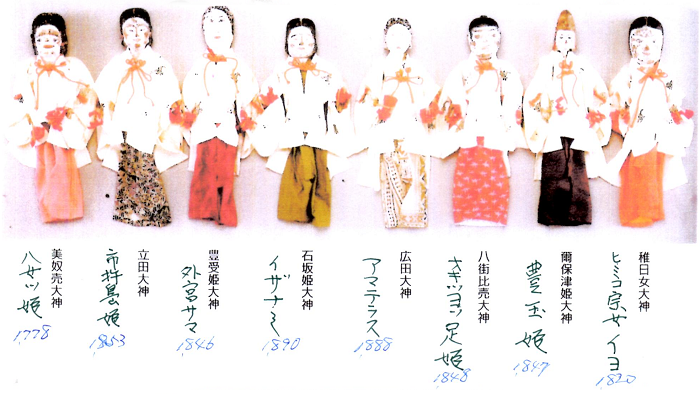 稚日女大神
ヒミコ宗女イヨ
1820
爾保津姫大神
豊玉姫
1847
八街比売大神
サキツヨソ足姫
1848
広田大神
アマテラス
1888
石坂姫大神
イザナミ
1890
豊受姫大神
外宮サマ
1846
立田大神
市杵島姫
1853
美奴売大神
八サツ姫
1778